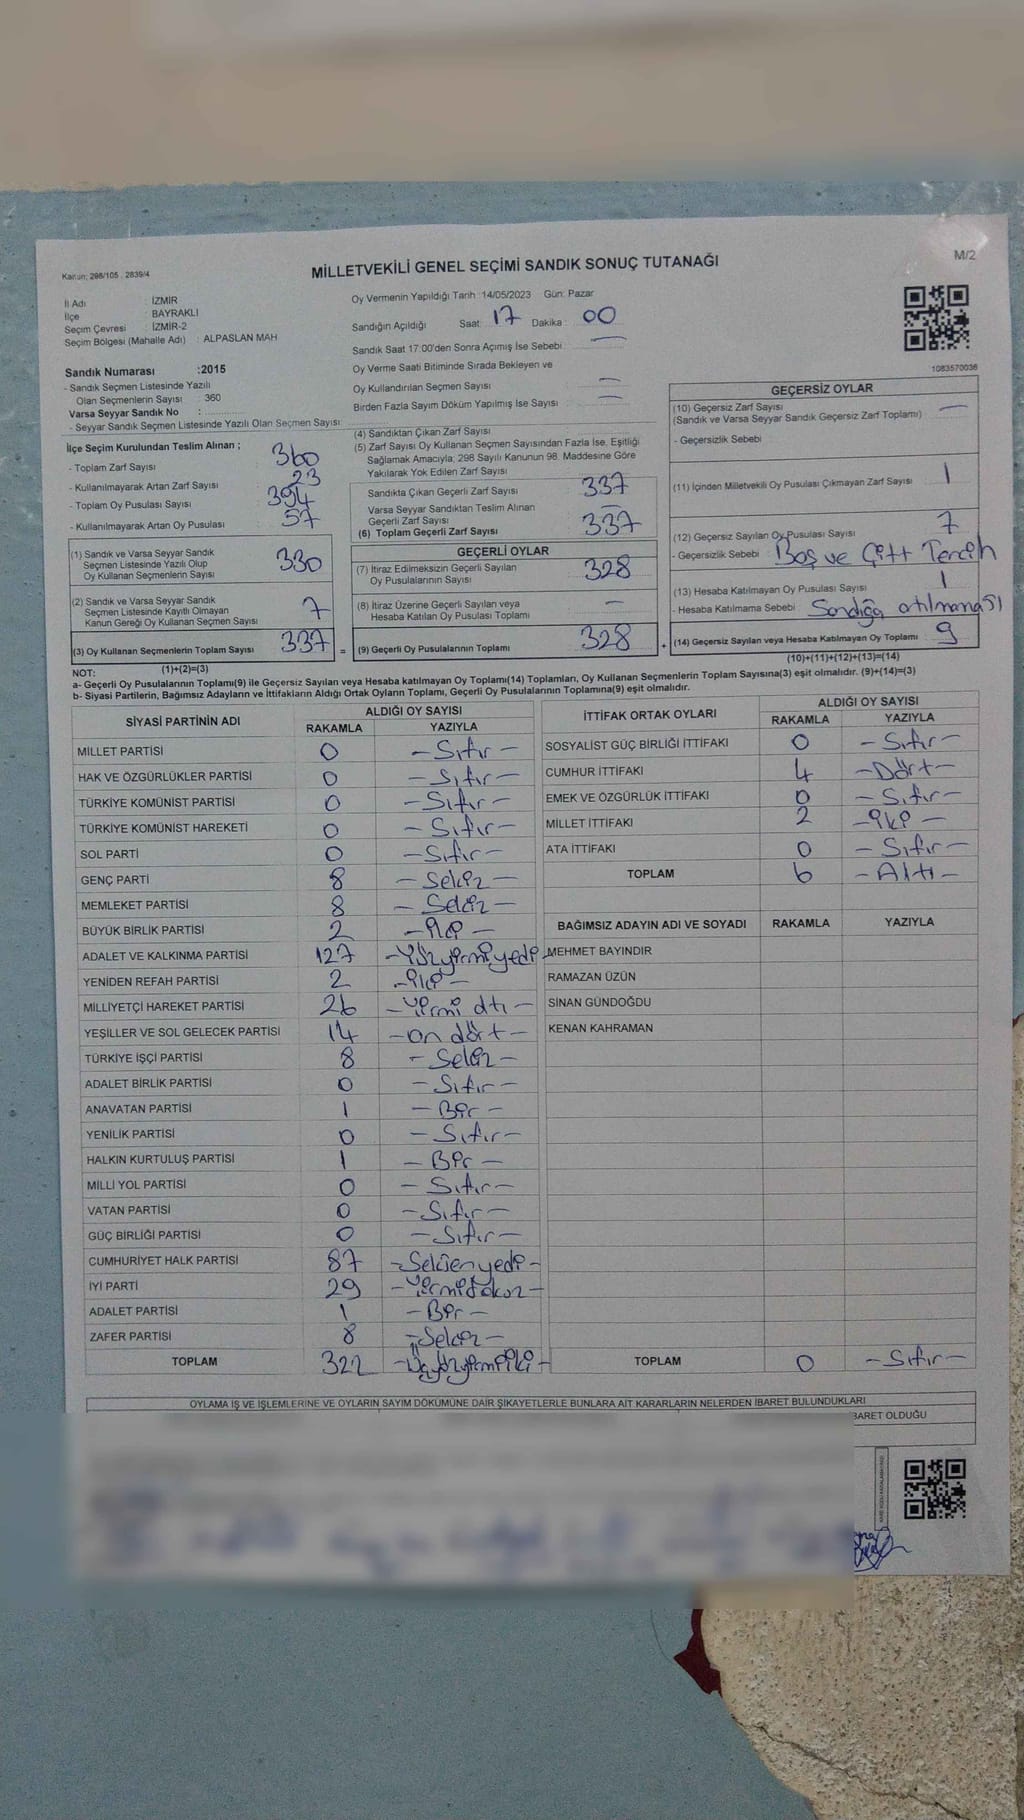 Kanun: 298/105 , 2839/4
MİLLETVEKİLİ GENEL SEÇİMİ SANDIK SONUÇ TUTANAĞI
M/2
İl Adı : İZMİR
İlçe BAYRAKLI
Seçim Çevresi : İZMİR-2
Seçim Bölgesi (Mahalle Adı) : ALPASLAN MAH
Sandık Numarası :2015
- Sandık Seçmen Listesinde Yazılı
Olan Seçmenlerin Sayısı : 360
Varsa Seyyar Sandık No :
- Seyyar Sandık Seçmen Listesinde Yazılı Olan Seçmen Sayısı:
Oy Vermenin Yapıldığı Tarih :14/05/2023 Gün: Pazar
Sandığın Açıldığı Saat: 17 Dakika : 00
Sandık Saat 17:00'den Sonra Açımış İse Sebebi : —
Oy Verme Saati Bitiminde Sırada Bekleyen ve
Oy Kullandırılan Seçmen Sayısı : —
Birden Fazla Sayım Döküm Yapılmış İse Sayısı : —
1083570036
İlçe Seçim Kurulundan Teslim Alınan ;
- Toplam Zarf Sayısı : 360
- Kullanılmayarak Artan Zarf Sayısı : 23
- Toplam Oy Pusulası Sayısı : 394
- Kullanılmayarak Artan Oy Pusulası : 57
(1) Sandık ve Varsa Seyyar Sandık
Seçmen Listesinde Yazılı Olup
Oy Kullanan Seçmenlerin Sayısı : 330
(2) Sandık ve Varsa Seyyar Sandık
Seçmen Listesinde Kayıtlı Olmayan
Kanun Gereği Oy Kullanan Seçmen Sayısı : 7
(3) Oy Kullanan Seçmenlerin Toplam Sayısı : 337 =
(1)+(2)=(3)
(4) Sandıktan Çıkan Zarf Sayısı :
(5) Zarf Sayısı Oy Kullanan Seçmen Sayısından Fazla İse, Eşitliği
Sağlamak Amacıyla; 298 Sayılı Kanunun 98. Maddesine Göre
Yakılarak Yok Edilen Zarf Sayısı :
Sandıkta Çıkan Geçerli Zarf Sayısı : 337
Varsa Seyyar Sandıktan Teslim Alınan
Geçerli Zarf Sayısı : —
(6) Toplam Geçerli Zarf Sayısı : 337
GEÇERLİ OYLAR
(7) İtiraz Edilmeksizin Geçerli Sayılan
Oy Pusulalarının Sayısı : 328
(8) İtiraz Üzerine Geçerli Sayılan veya
Hesaba Katılan Oy Pusulası Toplamı : —
(9) Geçerli Oy Pusulalarının Toplamı : 328 +
GEÇERSİZ OYLAR
(10) Geçersiz Zarf Sayısı : —
(Sandık ve Varsa Seyyar Sandık Geçersiz Zarf Toplamı)
- Geçersizlik Sebebi
(11) İçinden Milletvekili Oy Pusulası Çıkmayan Zarf Sayısı : 1
(12) Geçersiz Sayılan Oy Pusulası Sayısı : 7
- Geçersizlik Sebebi : Boş ve Çift Tercih
(13) Hesaba Katılmayan Oy Pusulası Sayısı : 1
- Hesaba Katılmama Sebebi Sandığa atılmaması
(14) Geçersiz Sayılan veya Hesaba Katılmayan Oy Toplamı : 9
(10)+(11)+(12)+(13)=(14)
NOT:
a- Geçerli Oy Pusulalarının Toplamı(9) ile Geçersiz Sayılan veya Hesaba katılmayan Oy Toplamı(14) Toplamları, Oy Kullanan Seçmenlerin Toplam Sayısına(3) eşit olmalıdır. (9)+(14)=(3)
b- Siyasi Partilerin, Bağımsız Adayların ve İttifakların Aldığı Ortak Oyların Toplamı, Geçerli Oy Pusulalarının Toplamına(9) eşit olmalıdır.
SİYASİ PARTİNİN ADI ALDIĞI OY SAYISI
RAKAMLA YAZIYLA
MİLLET PARTİSİ 0 - Sıfır -
HAK VE ÖZGÜRLÜKLER PARTİSİ 0 - Sıfır -
TÜRKİYE KOMÜNİST PARTİSİ 0 - Sıfır -
TÜRKİYE KOMÜNİST HAREKETİ 0 - Sıfır -
SOL PARTİ 0 - Sıfır -
GENÇ PARTİ 8 - Sekiz -
MEMLEKET PARTİSİ 8 - Sekiz -
BÜYÜK BİRLİK PARTİSİ 2 - İki -
ADALET VE KALKINMA PARTİSİ 127 - Yüzyirmiyedi -
YENİDEN REFAH PARTİSİ 2 - İki -
MİLLİYETÇİ HAREKET PARTİSİ 26 - Yirmi altı -
YEŞİLLER VE SOL GELECEK PARTİSİ 14 - on dört -
TÜRKİYE İŞÇİ PARTİSİ 8 - Sekiz -
ADALET BİRLİK PARTİSİ 0 - Sıfır -
ANAVATAN PARTİSİ 1 - Bir -
YENİLİK PARTİSİ 0 - Sıfır -
HALKIN KURTULUŞ PARTİSİ 1 - Bir -
MİLLİ YOL PARTİSİ 0 - Sıfır -
VATAN PARTİSİ 0 - Sıfır -
GÜÇ BİRLİĞİ PARTİSİ 0 - Sıfır -
CUMHURİYET HALK PARTİSİ 87 - Seksenyedi -
İYİ PARTİ 29 - Yirmidokuz -
ADALET PARTİSİ 1 - Bir -
ZAFER PARTİSİ 8 - Sekiz -
TOPLAM 322 - Üçyüzyirmiiki -
İTTİFAK ORTAK OYLARI ALDIĞI OY SAYISI
RAKAMLA YAZIYLA
SOSYALİST GÜÇ BİRLİĞİ İTTİFAKI 0 - Sıfır -
CUMHUR İTTİFAKI 4 - Dört -
EMEK VE ÖZGÜRLÜK İTTİFAKI 0 - Sıfır -
MİLLET İTTİFAKI 2 - İki -
ATA İTTİFAKI 0 - Sıfır -
TOPLAM 6 - Altı -
BAĞIMSIZ ADAYIN ADI VE SOYADI RAKAMLA YAZIYLA
MEHMET BAYINDIR
RAMAZAN ÜZÜN
SİNAN GÜNDOĞDU
KENAN KAHRAMAN
TOPLAM 0 - Sıfır -
OYLAMA İŞ VE İŞLEMLERİNE VE OYLARIN SAYIM DÖKÜMÜNE DAİR ŞİKAYETLERLE BUNLARA AİT KARARLARIN NELERDEN İBARET BULUNDUKLARI
BARET OLDUĞU